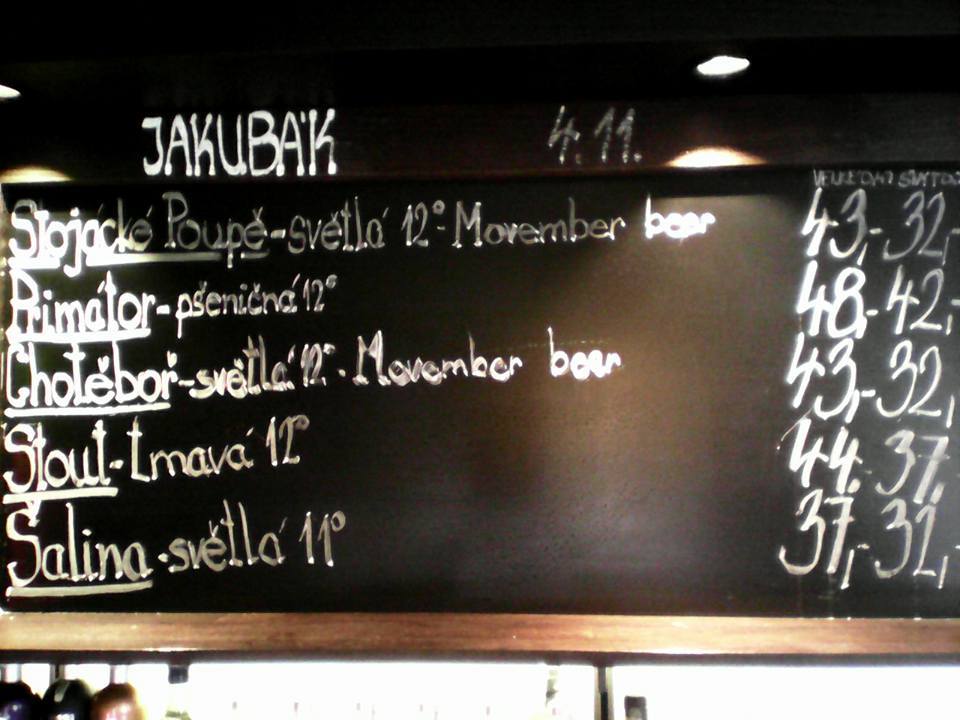 JAKUBÁK 4.11.
Stojácké Poupě-světlá 12°-Movember beer 43,- 32,-
Primátor-pšeničná 12° 48,- 42,-
Chotěboř-světlá 12°-Movember beer 43,- 32,-
Stout-tmavá 12° 44,- 37,-
Šalina-světlá 11° 37,- 32,-